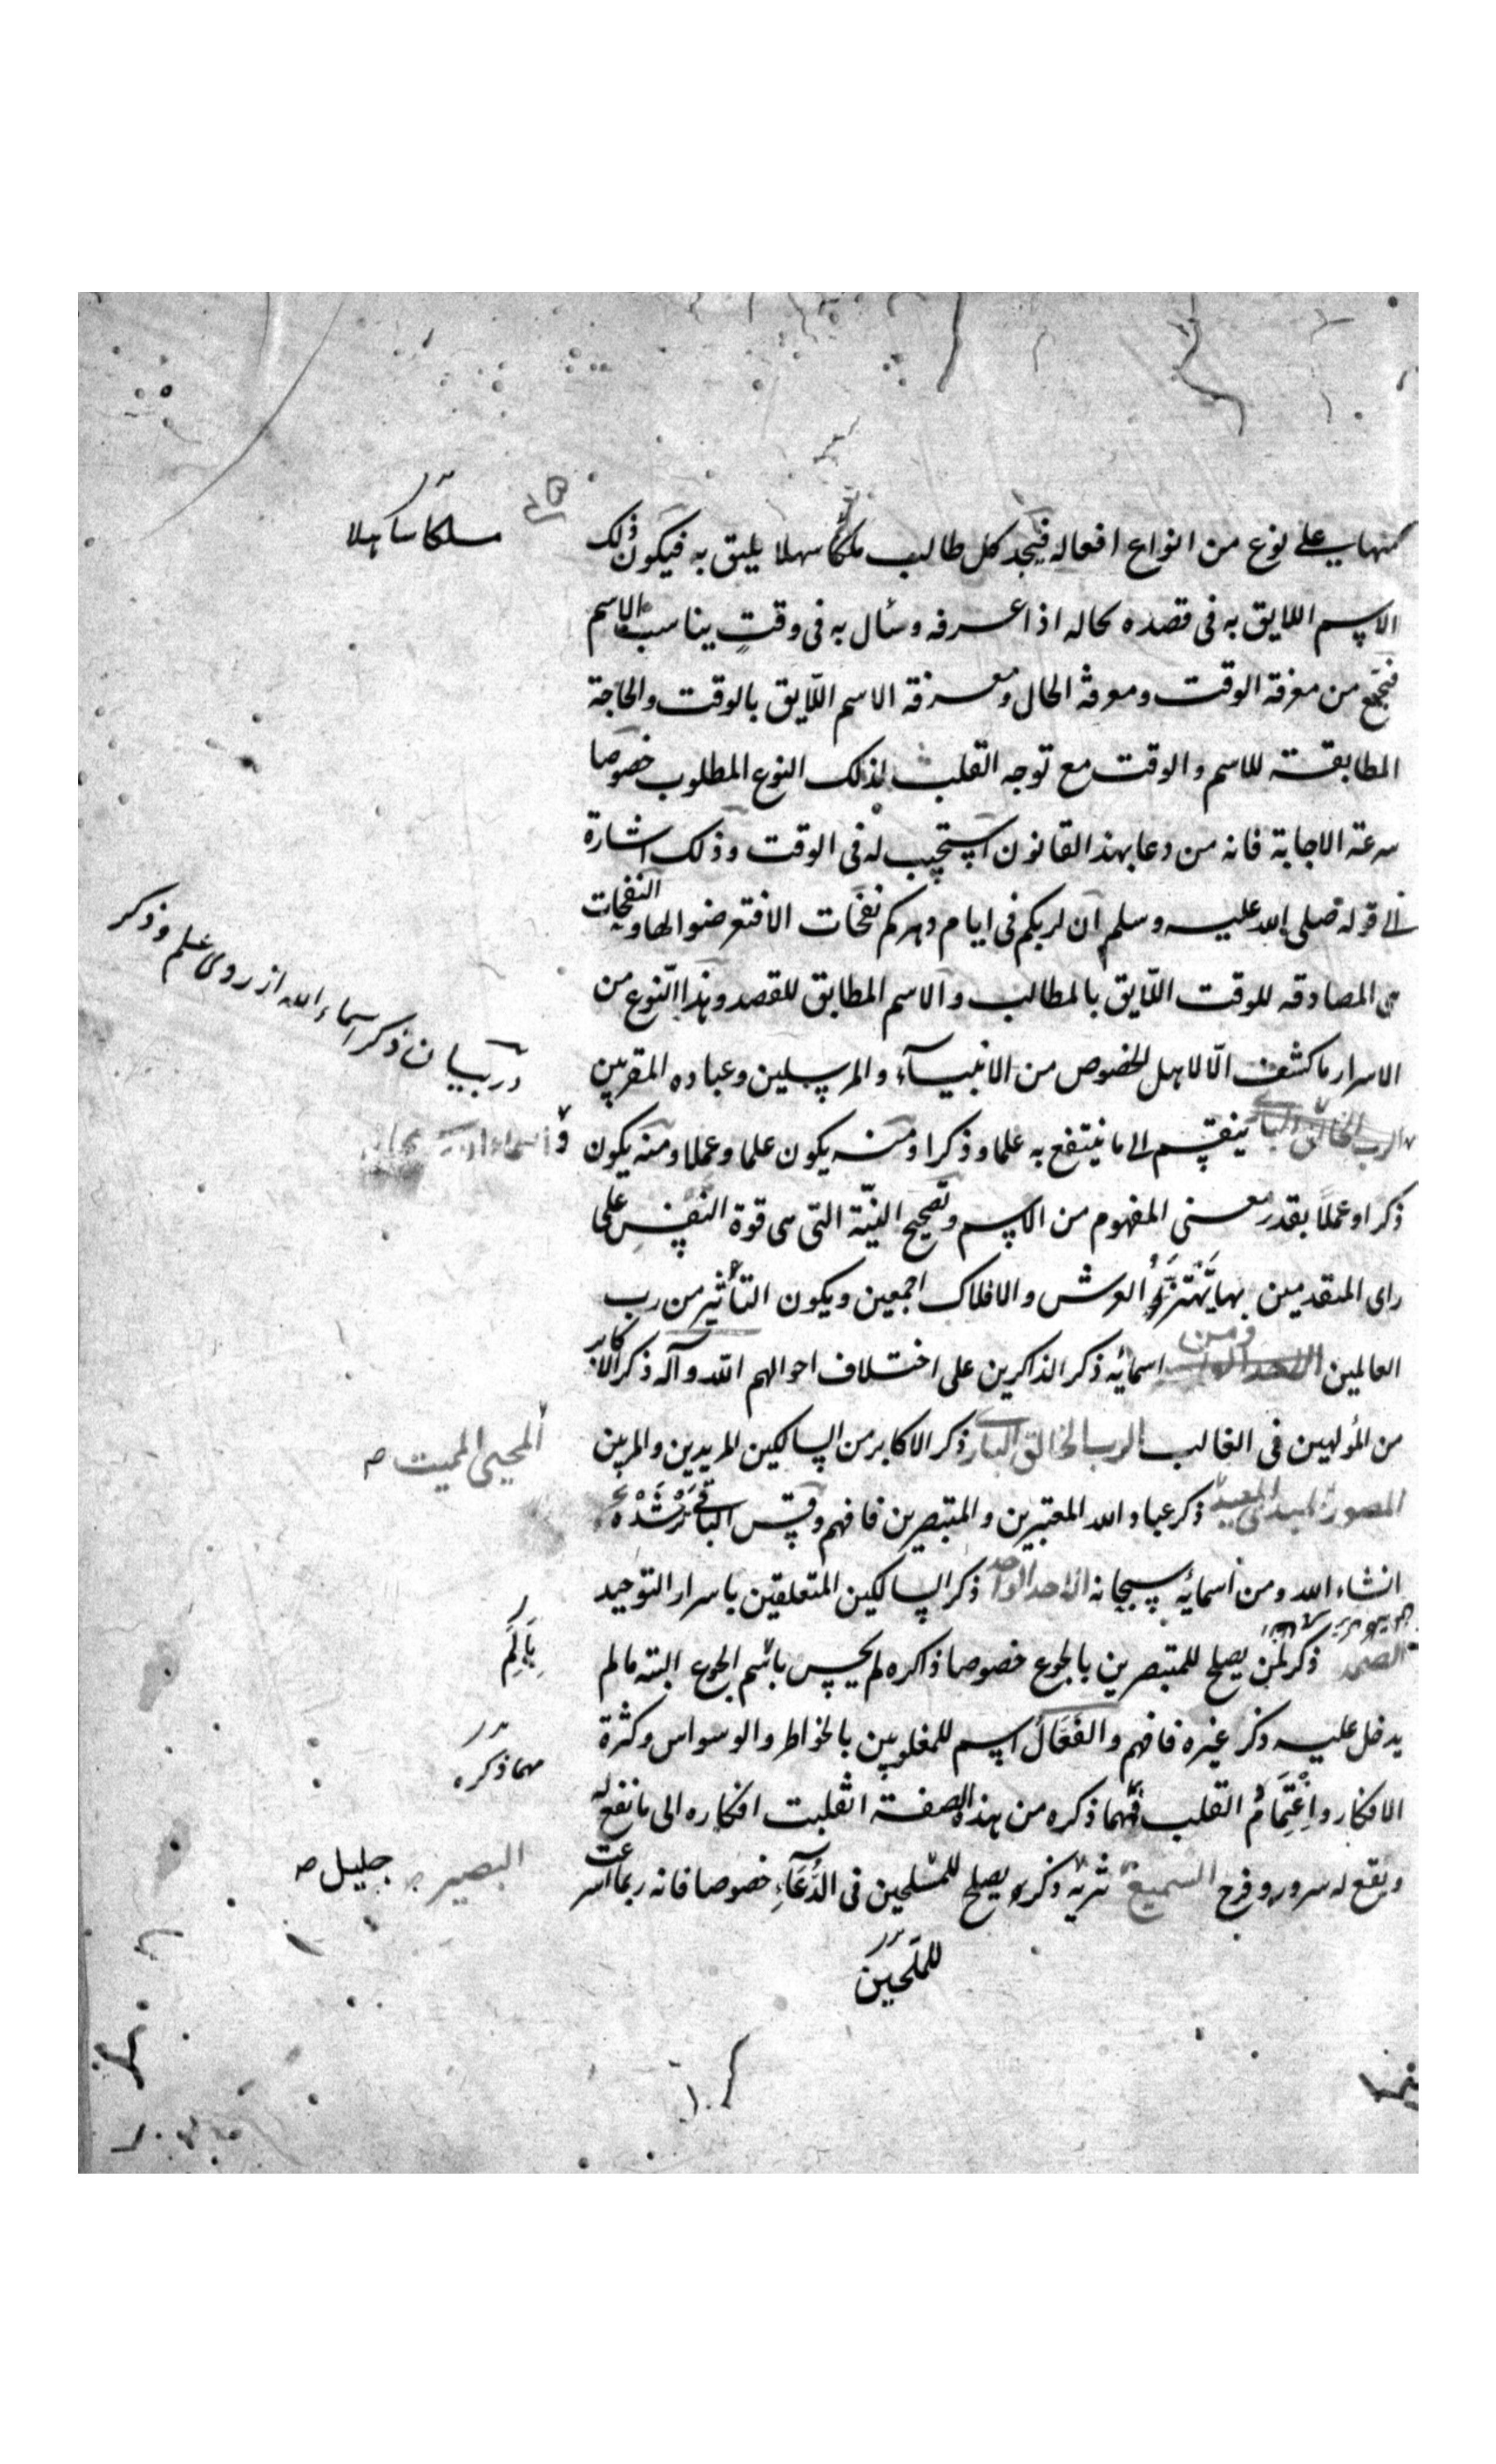 منها على نوع من انواع افعاله فيجد كل طالب ملكا سهلا يليق به فيكون ذلك
مسلكا سهلا
الاسم اللايق به فى قصده بحاله اذا عرفه وسأل به فى وقتٍ يناسب الاسم
فيجمع من معرفة الوقت ومعرفة الحال ومعرفة الاسم اللّايق بالوقت والحاجة
المطابقة للاسم والوقت مع توجه القلب لذلك النوع المطلوب خصوصا
سرعة الاجابة فانه من دعا بهذا القانون استجيب له فى الوقت وذلك اشارة
الى قوله صلى الله عليه وسلم ان لربكم فى ايام دهركم نفحات الا فتعرضوا لها والنفحات
هى المصادقه للوقت اللّايق بالمطالب والاسم المطابق للقصد وهذا النّوع من
الاسرار ما كشف الّا لاهل الخصوص من الانبيآء والمرسلين وعباده المقربين
در بيان ذكر اسماء الله از روى علم وذكر
ينقسم الى ما ينتفع به علما وذكرا ومنه يكون علما وعملا ومنه يكون
ذكرا وعملًا بقدر معنى المفهوم من الاسم وتصحيح النيّة التى هى قوة النفس على
راى المتقدمين بها يهتز العرش والافلاك اجمعين ويكون التأثير من رب
العالمين ومن اسمائه ذكر الذاكرين على اختلاف احوالهم الله وآله ذكر الاكابر
من المولهين فى الغالب الرب الخالق البارى ذكر الاكابر من السالكين المريدين والمربين
المحيى المميت صح
المصور المبدئ المعيد ذكر عباد الله المعتبرين والمتبصرين فافهم وقس الباقى ترشده
انشاء الله ومن اسمائه سبحانه الاحد الواحد ذكر السالكين المتعلقين باسرار التوحيد
الصمد ذكر لمن يصلح للمتبصرين بالجوع خصوصا ذاكره لم يحس بالم الجوع البته مالم
بِاَلَمِ
يدخل عليه ذكر غيره فافهم والفَعَّالُ اسم للمغلوبين بالخواطر والوسواس وكثرة
الافكار واِغْتِمَامُ القلب فمهما ذكره من هذه الصفة انقلبت افكاره الى ما نفع له
مهما ذكره
ويقع له سرور وفرح السميع ذكر يصلح للمسلحين فى الدُّعَآءِ خصوصا فانه ربما اسرعت
البصير صح جليل صح
للملحين